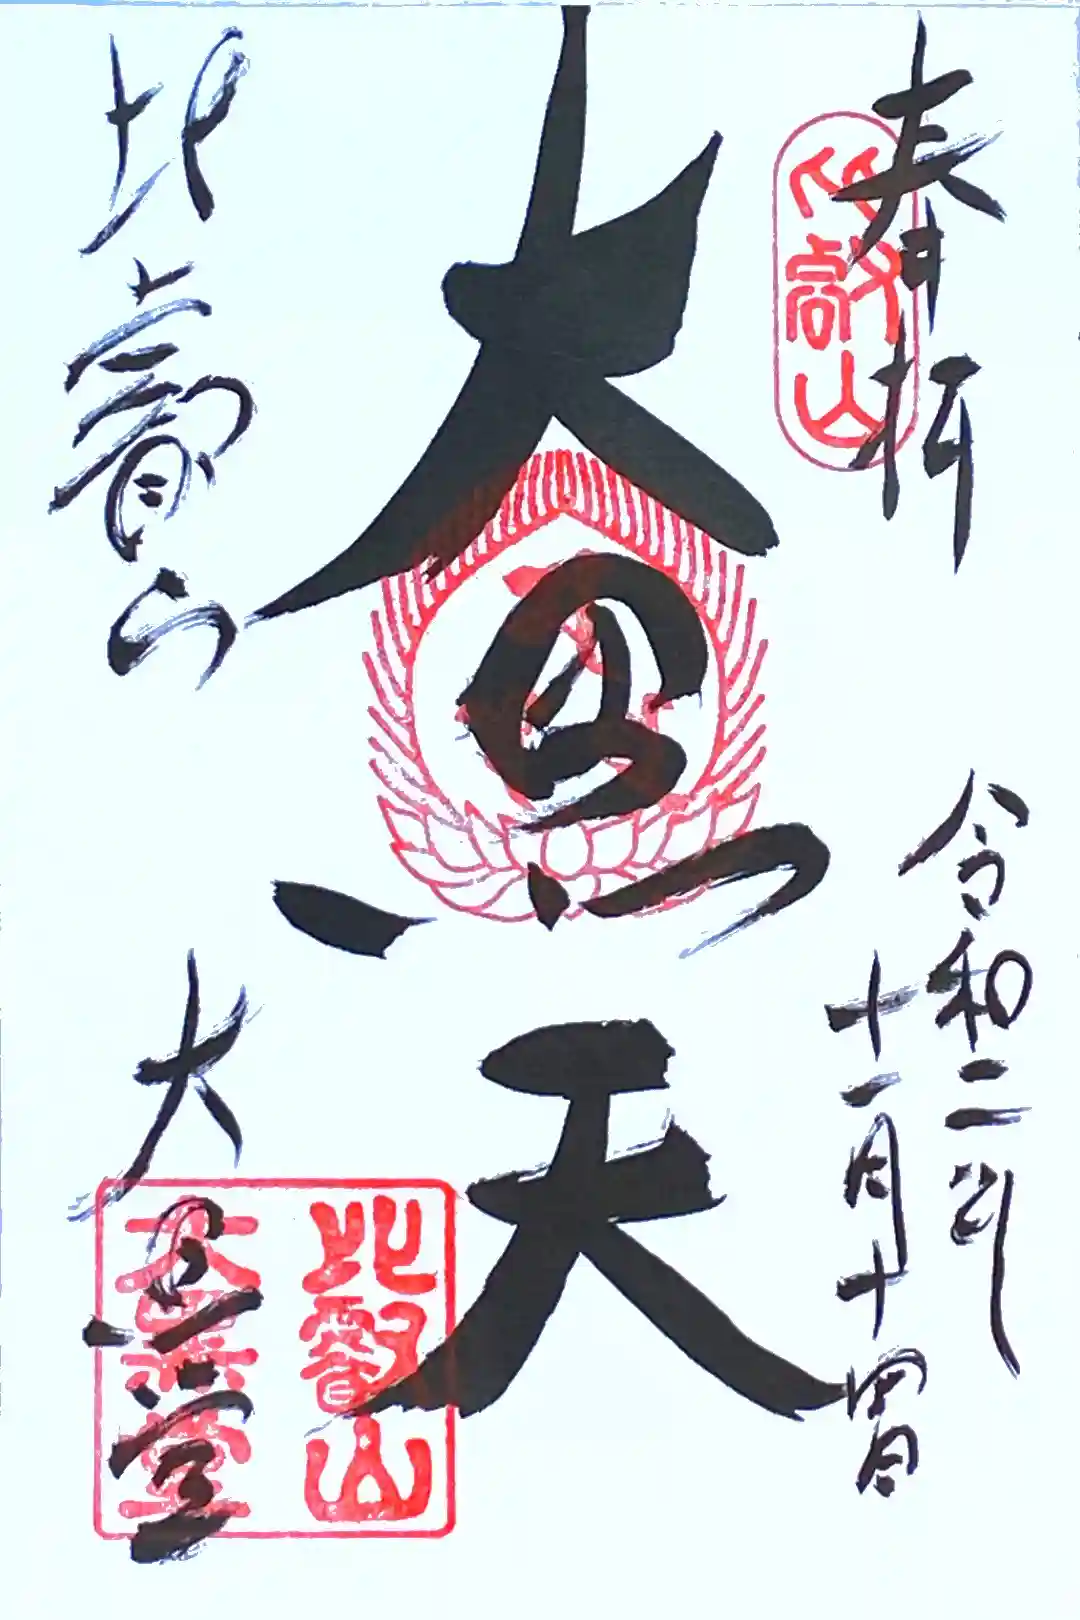 奉拝
比叡山
令和二年
十一月十四日
大黒天
比叡山
大黒堂
比叡山
大黒堂